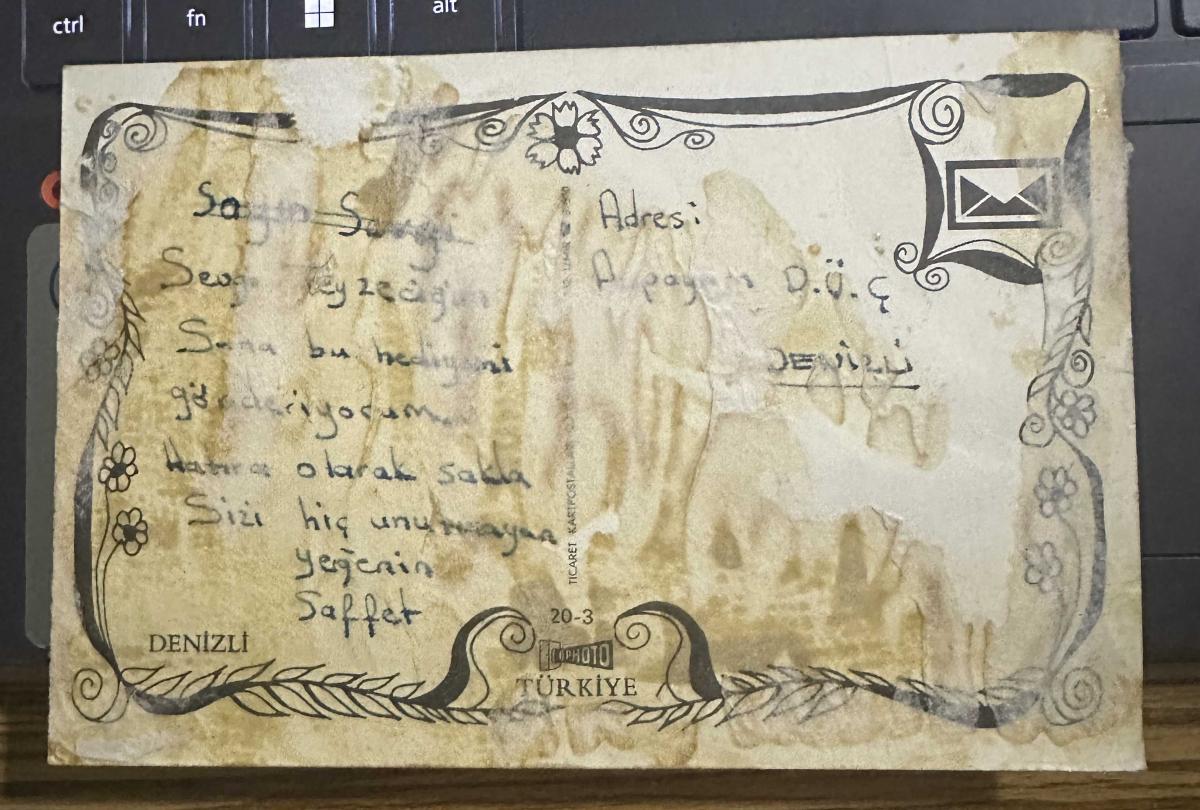 ctrl
fn
alt
Sayın Sevgi
Sevgi Teyzeciğim
Sana bu hediyemi
gönderiyorum
Hatıra olarak sakla
Sizi hiç unutmayan
yeğenin
Saffet
DENİZLİ
TİCARET KARTPOSTALLARI
20-3
PHOTO
TÜRKİYE
Adresi
Acıpayam D.Ü.Ç
DENİZLİ